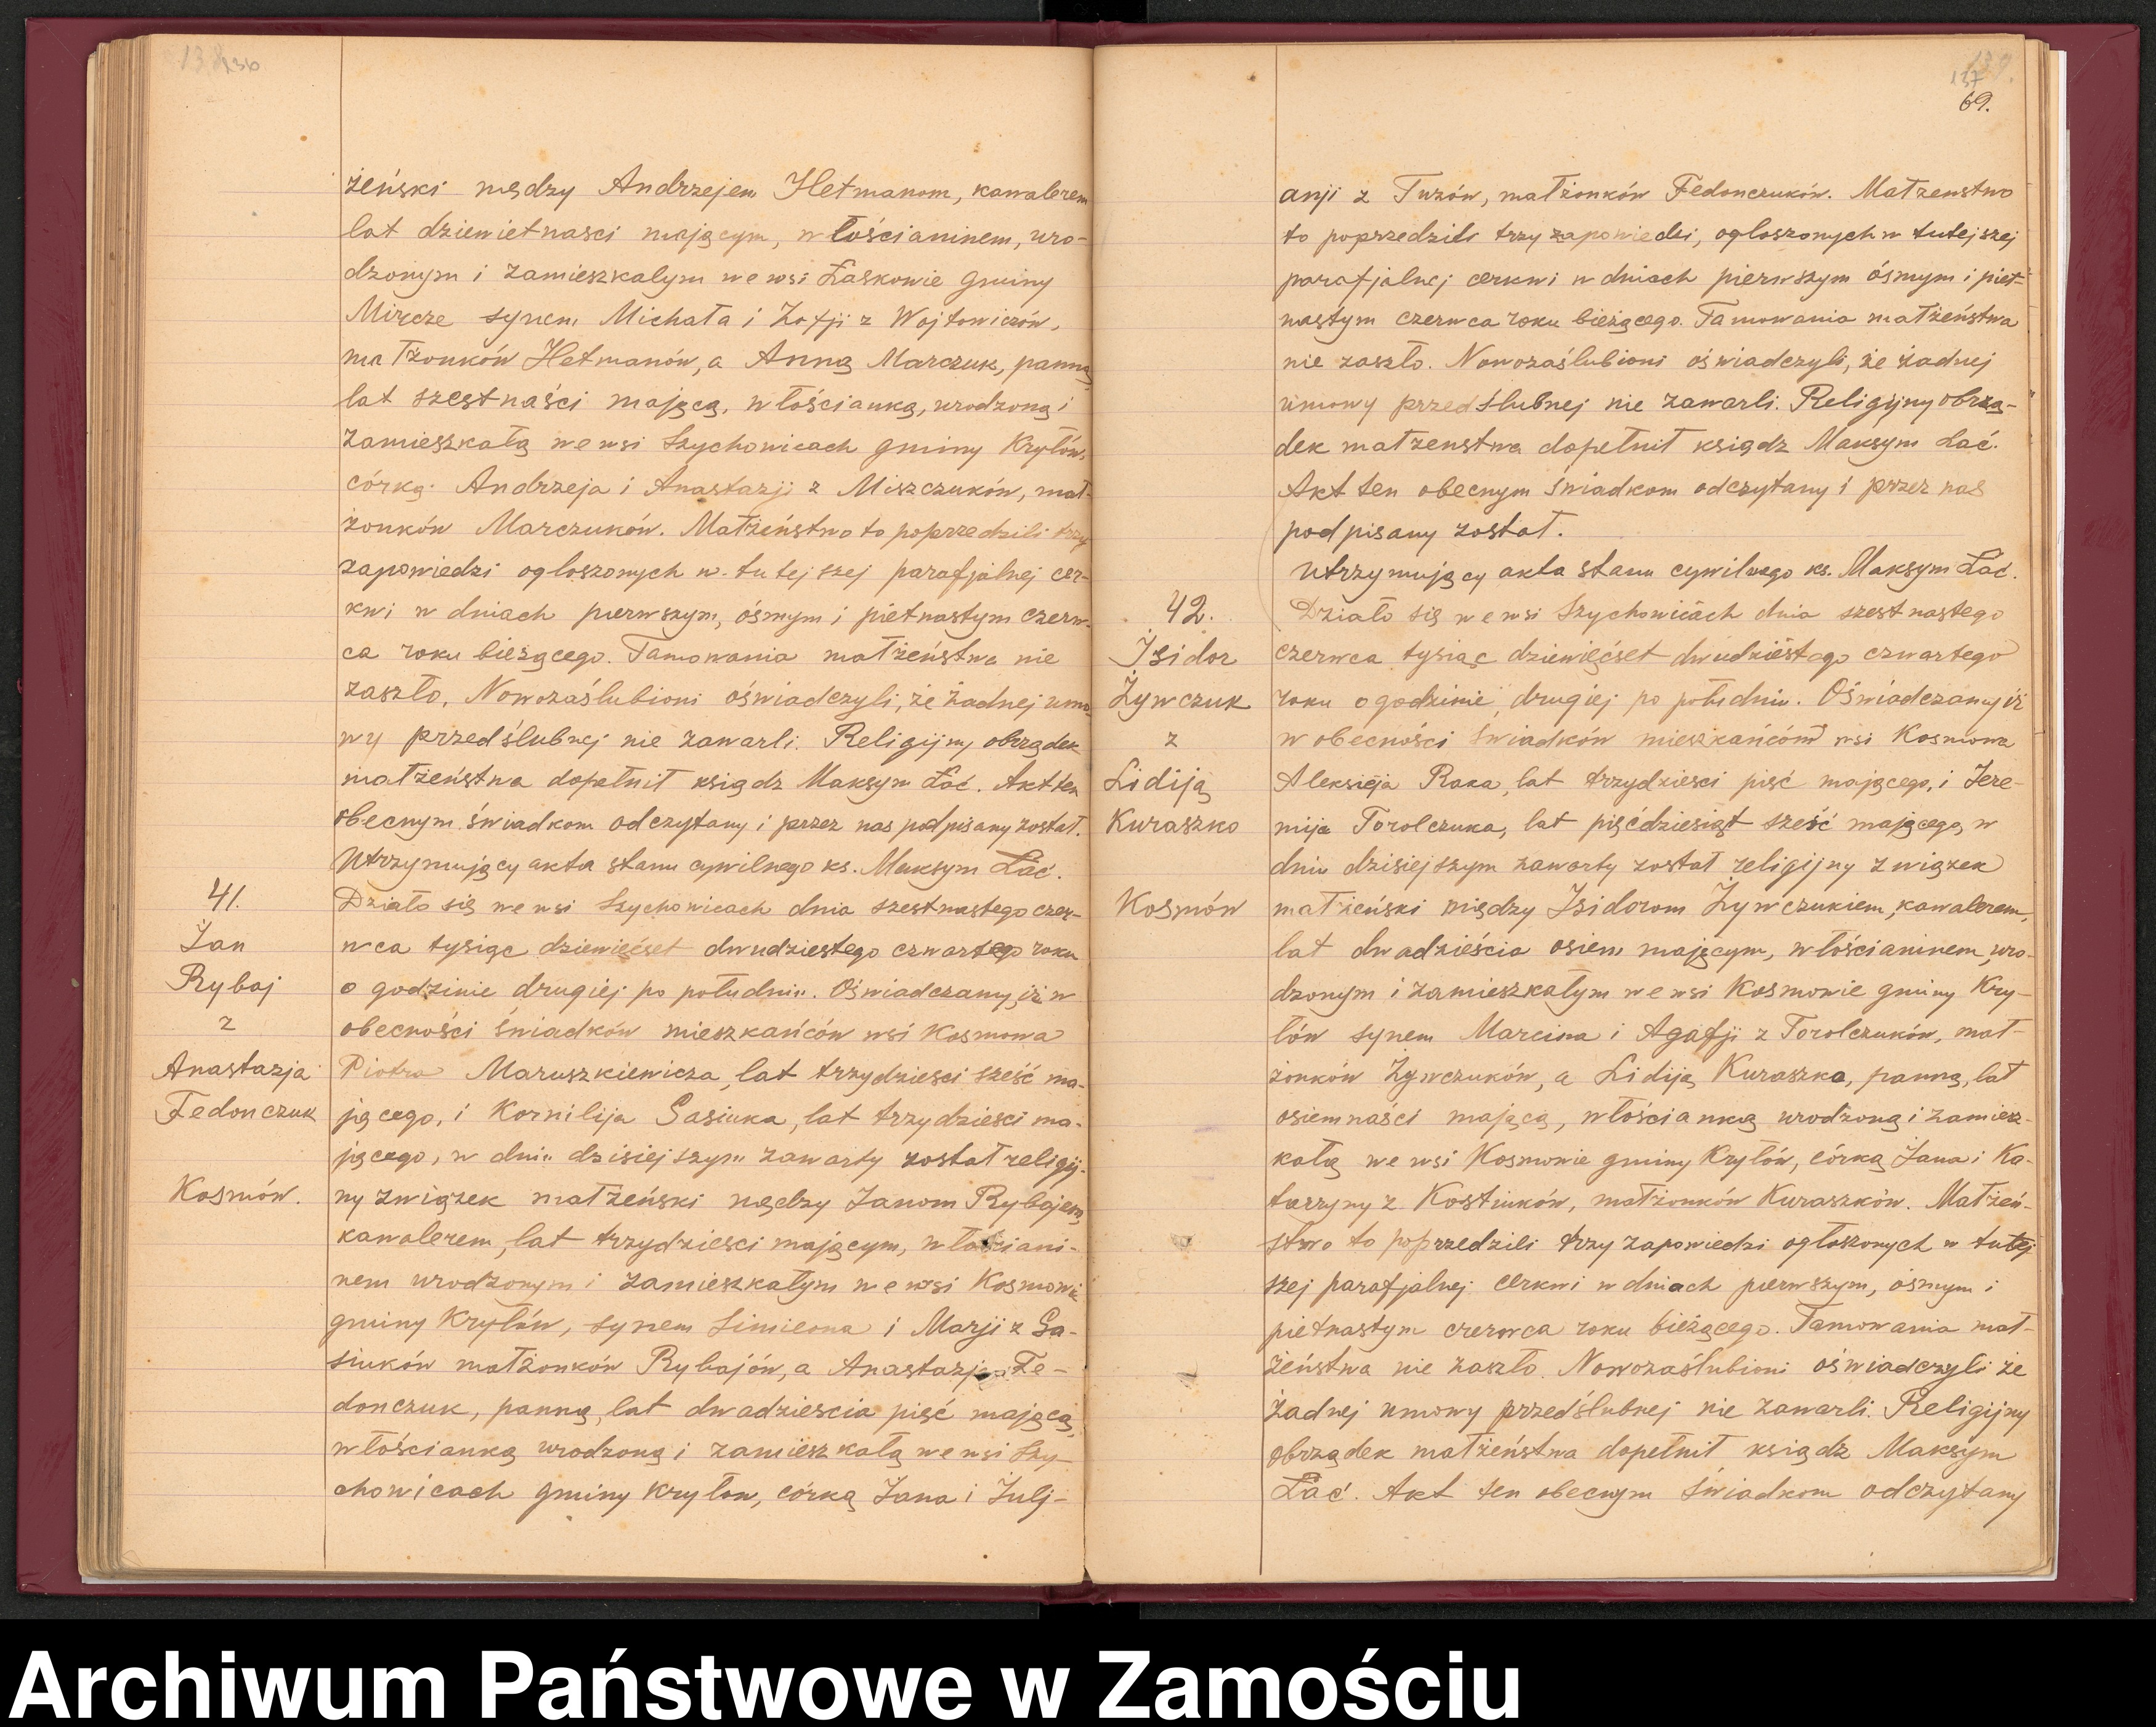 136
żeński mędzy Andrzejem Hetmanom, kawalerem
lat dziewietnasci mającym, włościaninem, uro-
dzonym i zamieszkalym we wsi Łaskowie gminy
Mircze synem Michała i Zofji z Wojtowiczów,
małżonków Hetmanów, a Anną Marczuk, panną
lat szestnaści mającą, włościanką, urodzoną i
zamieszkałą we wsi Szychowicach gminy Kryłów,
córką Andrzeja i Anastazji z Miszczuków, mał-
żonków Marczuków. Małżeństwo to poprzedzili trzy
zapowiedzi ogloszonych w tutejszej parafjalnej cer-
kwi w dniach pierwszym, ósmym i pietnastym czerw-
ca roku bieżącego. Tamowania małżeństwa nie
zaszło, Nowozaślubioni oświadczyli, że żadnej umo
wy przedślubnej nie zawarli. Religijny obrządek
małżeństwa dopełnił ksiądz Maksym Łać. Akt ten
obecnym świadkom odczytany i przez nas podpisany został.
Utrzymujący akta stanu cywilnego ks. Maksym Łać.
41.
Jan
Rybaj
z
Anastazja
Fedonczuk
Kosmów.
Działo się we wsi Szychowicach dnia szestnastego czer-
wca tysiąc dziewięćset dwudziestego czwartego roku
o godzinie drugiej po południu. Oświadczamy, iż w
obecności świadków mieszkańców wsi Kosmowa
Piotra Maruszkiewicza, lat trzydziesci sześć ma-
jącego, i Kornilija Sasiuka, lat trzydziesci ma-
jącego, w dniu dzisiejszym zawarty został religij-
ny związek małżeński nędzy Janom Rybajem,
kawalerem, lat trzydziesci mającym, włościani-
nem urodzonym i zamieszkałym we wsi Kosmowie
gminy Kryłów, synem Simieona i Marji z Sa-
siuków małżonków Rybajów, a Anastazją Fe-
donczuk, panną, lat dwadziescia pięć mającą,
włościanką urodzoną i zamieszkałą we wsi Szy-
chowicach gminy Kryłow, córką Jana i Julj-
137
69.
anji z Tuzów, małżonków Fedonczuków. Małzenstwo
to poprzedzili trzy zapowiedzi, ogloszonych w tutejszej
parafjalnej cerkwi w dniach pierwszym ósmym i piet-
nastym czerwca roku bieżącego. Tamowania małżeństwa
nie zaszło. Nowozaślubioni oświadczyli, że żadnej
umowy przedślubnej nie zawarli. Religijny obrzą-
dek małzenstwa dopełnił ksiądz Maksym Łać.
Akt ten obecnym świadkom odczytany i przez nas
podpisany został.
Utrzymujący akta stanu cywilnego ks. Maksym Łać.
42.
Isidor
Żywczuk
z
Lidiją
Kuraszko
Kosmów
Działo się we wsi Szychowicach dnia szestnastego
czerwca tysiąc dziewięćset dwudziestego czwartego
roku o godzinie drugiej po południu. Oświadczamy iż
w obecności świadków mieszkańców wsi Kosmowa
Aleksieja Raka, lat trzydziesci pięć mającego, i Jere-
mija Torolczuka, lat pięćdziesiąt sześć mającego, w
dniu dzisiejszym zawarty został religijny związek
małżeński między Isidorom Żywczukiem, kawalerem,
lat dwadzieścia osiem mającym, włościaninem, uro-
dzonym i zamieszkałym we wsi Kosmowie gminy Kry-
łów synem Marcina i Agafji z Torolczuków, mał-
żonków Żywczuków, a Lidiją Kuraszko, panną, lat
osiemnaści mającą, włościanką urodzoną i zamiesz-
kałą we wsi Kosmowie gminy Kryłów, córką Jana i Ka-
tarzyny z Kostiuków, małżonków Kuraszków. Małżeń-
stwo to poprzedzili trzy zapowiedzi ogłoszonych w tutej
szej parafjalnej cerkwi w dniach pierwszym, osmym i
pietnastym czerwca roku bieżącego. Tamowania mał-
żeństwa nie zaszło. Nowozaślubioni oświadczyli że
żadnej umowy przedślubnej nie zawarli. Religijny
obrządek małżeństwa dopełnił ksiądz Maksym
Łać. Akt ten obecnym świadkom odczytany
Archiwum Państwowe w Zamościu